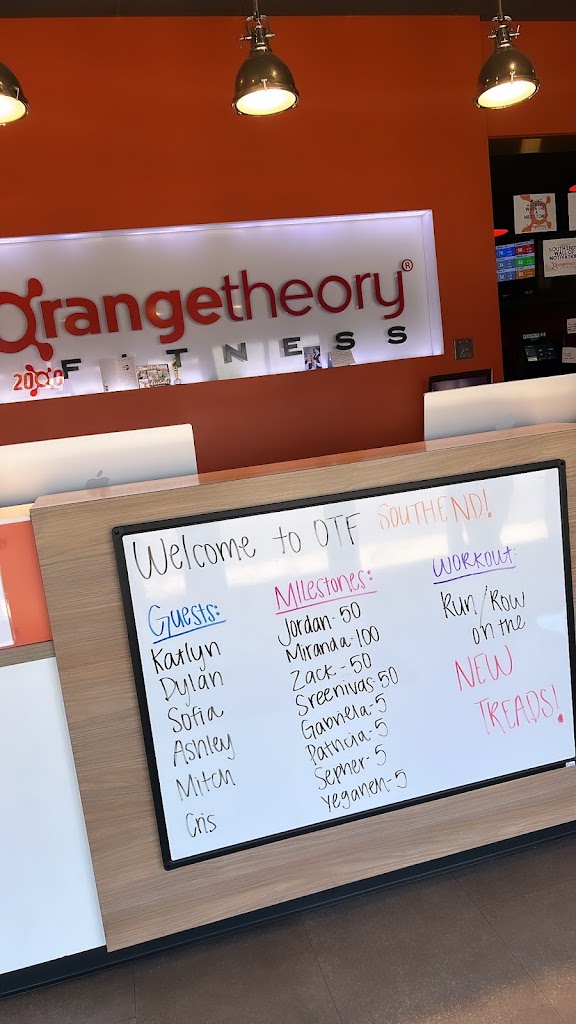 Orangetheory®
FITNESS
Welcome to OTF SOUTHEND!
Guests:
Katlyn
Dylan
Sofia
Ashley
Mitch
Cris
Milestones:
Jordan-50
Miranda-100
Zack-50
Sreenivas-50
Gabriela-5
Patricia-5
Sepher-5
Yeganeh-5
WORKOUT:
Run/Row
on the
NEW
TREADS!